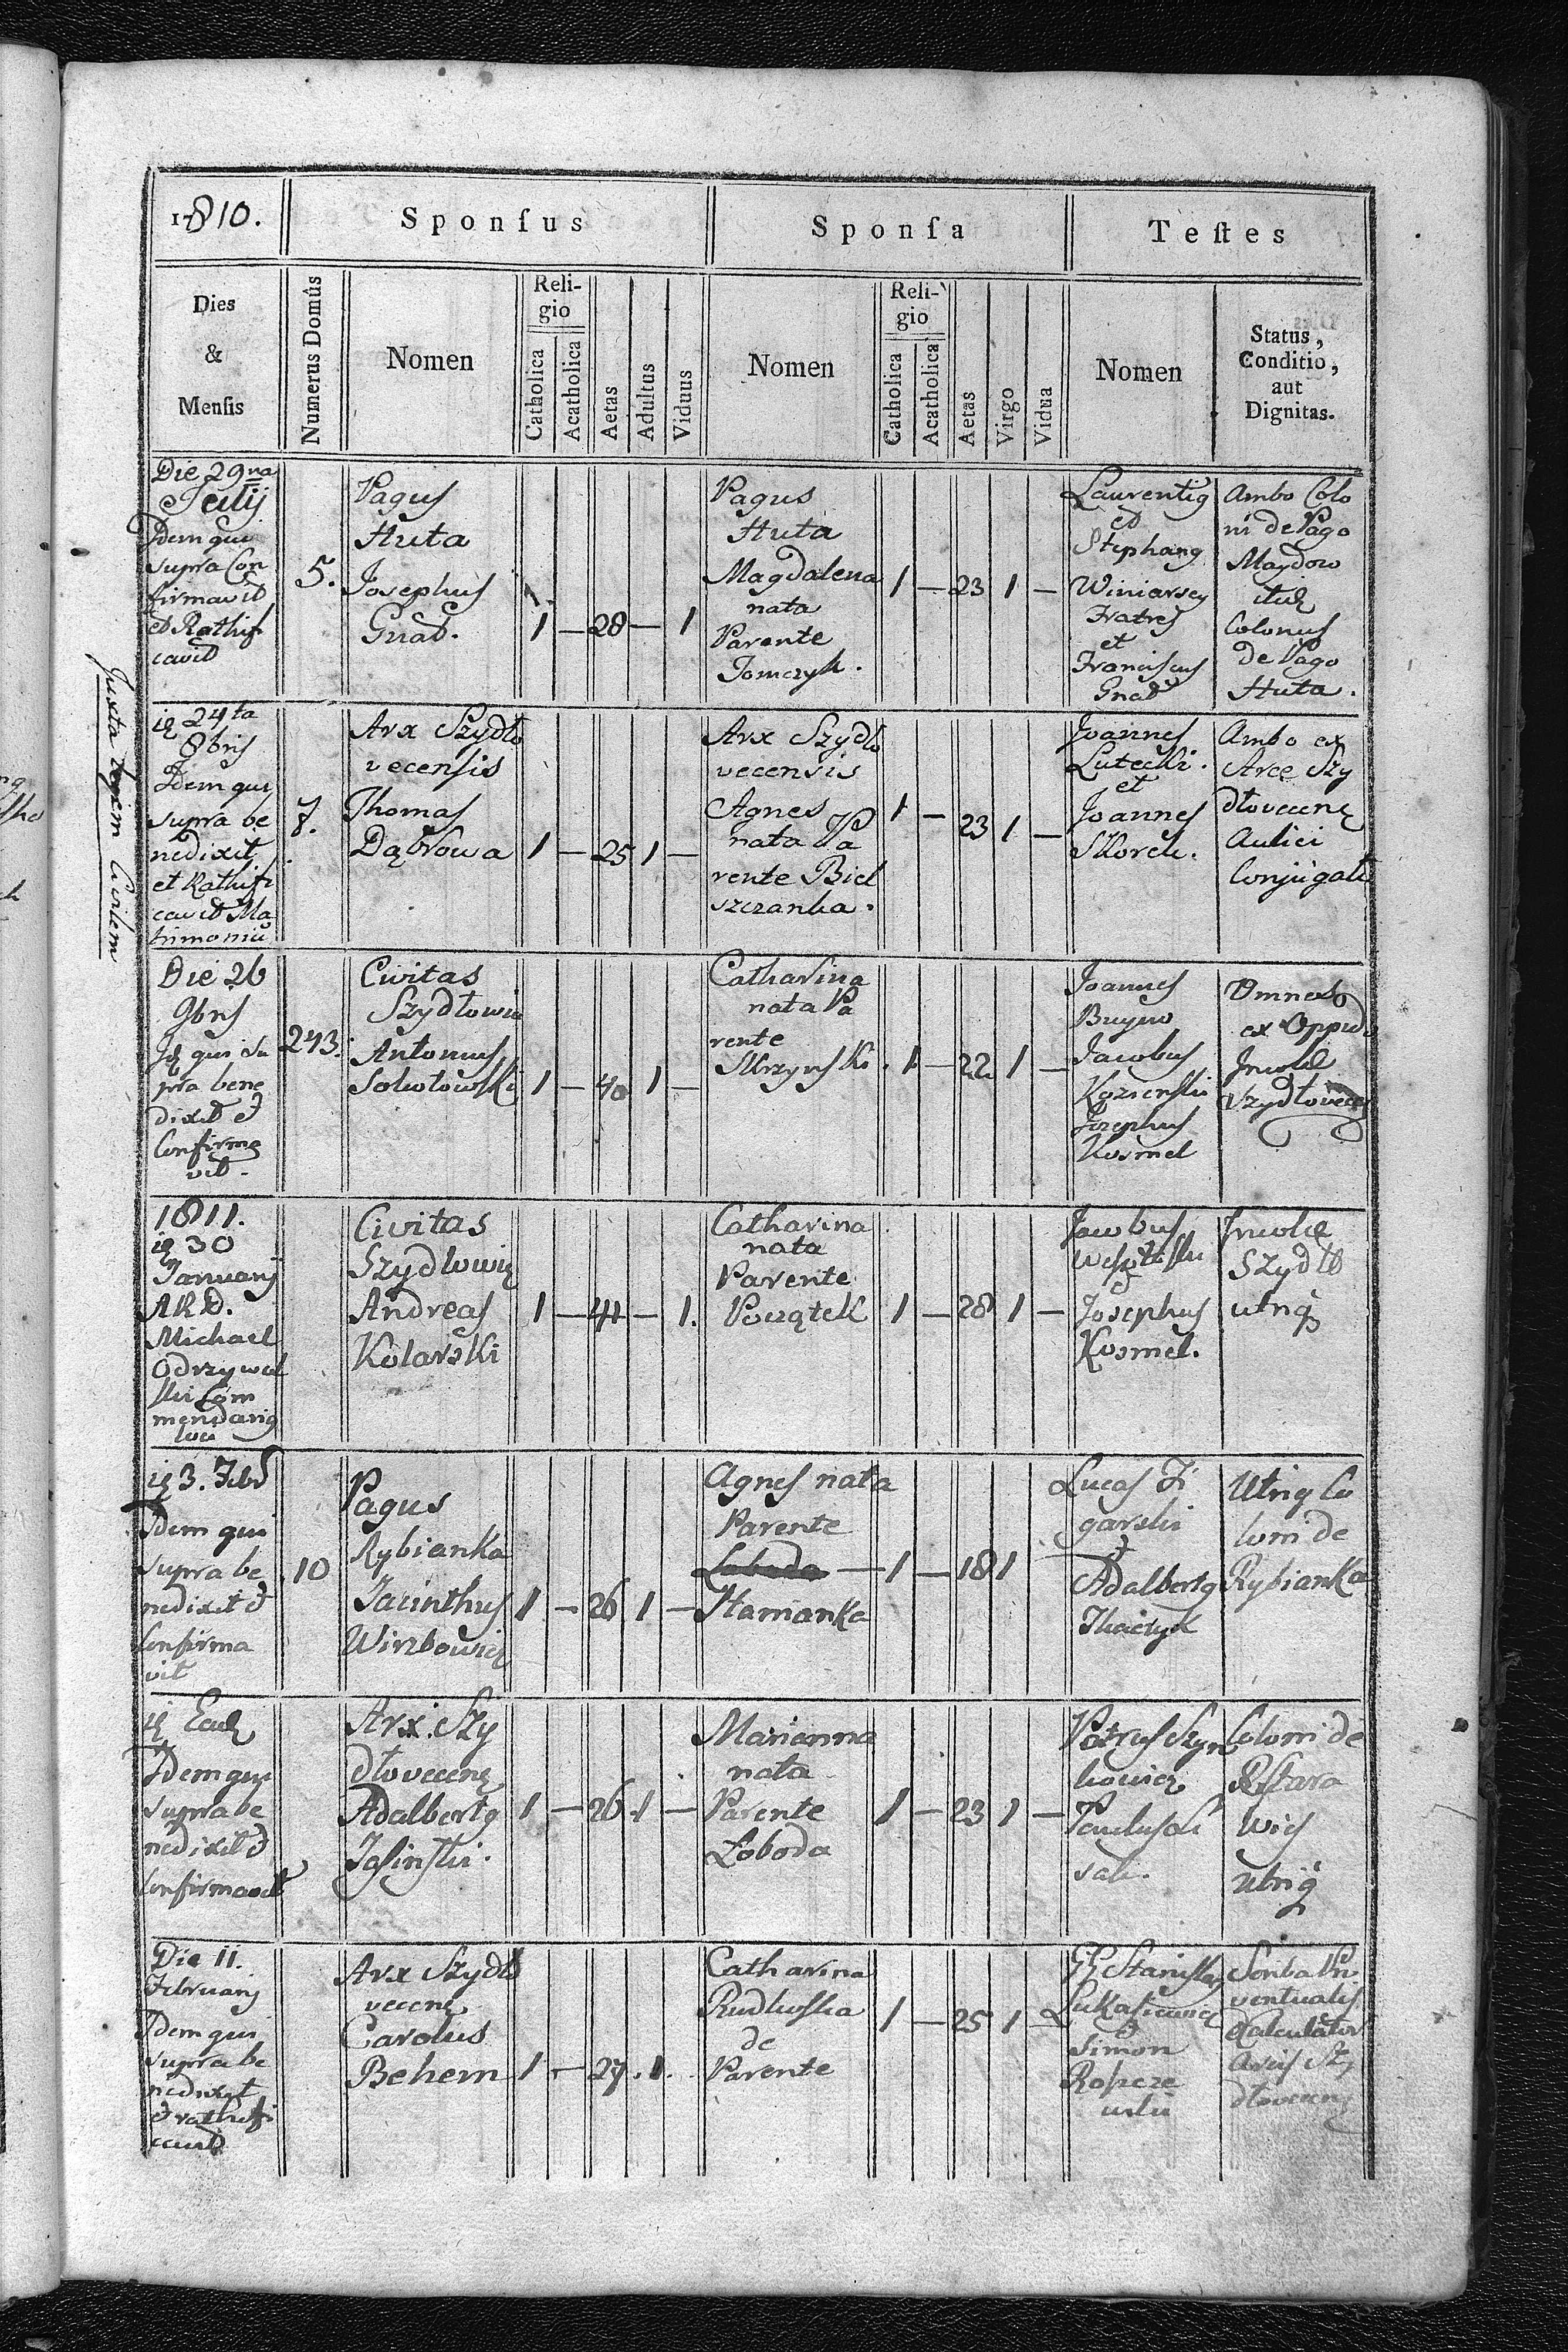 1810.
Sponſus
Sponſa
Teſtes
Dies
&
Menſis
Numerus Domûs
Nomen
Reli-
gio
Catholica
Acatholica
Aetas
Adultus
Viduus
Nomen
Reli-
gio
Catholica
Acatholica
Aetas
Virgo
Vidua
Nomen
Status,
Conditio,
aut
Dignitas.
Juxta Legem Civilem
Die 29na
Julij
Idem qui
supra Con
firmavit
et Rathifi
cavit
5.
Pagus
Huta
Josephus
Gnat.
1 — 28 — 1
Pagus
Huta
Magdalena
nata
Parente
Tomczyk.
1 — 23 1 —
Laurentig
et
Stephang
Winiarscy
Fratres
et
Franciscus
Gnat
Ambo Colo
ni de Pago
Maydow
Colonus
de Pago
Huta.
24ta
8bris
Idem qui
supra be
nedixit
et Rathifi
cavit Ma
trimoniũ
7.
Arx Szydło
vecensis
Thomas
Dąbrowa
1 — 25 1 —
Arx Szydło
vecensis
Agnes
nata Pa
rente Biel
szczanka.
1 — 23 1 —
Joannes
Lutecki.
et
Joannes
Skorek.
Ambo ex
Arce Szy
dłovecen
Aulici
Conjugati
Die 26
9bris
qui Su
pra bene
dixit et
Confirma
vit.
243.
Civitas
Szydłowie
Antonius
Sokołowski
1 — 40 1 —
Catharina
nata Pa
rente
Skrzynski.
1 — 22 1 —
Joannes
Jacobus
Kozienski
Josephus
Kosmel
Omnes
ex Oppido
Incolæ
Szydłovecen
1811.
30
Januarij
ARD.
Michael
Odrzywol
ski Com
mendarig
loci
Civitas
Szydłowie
Andreas
Kolarski
1 — 41 — 1.
Catharina
nata
Parente
Początek
1 — 28 1 —
Jacobus
Josephus
Kosmel.
Incolæ
Szydło
utriq
3. Febr
Idem qui
supra be
nedixit et
Confirma
vit
10
Pagus
Rybianka
Jacinthus
Wirzbowicz
1 — 26 1 —
Agnes nata
Parente
Łoboda
Hamanka
1 — 18 1
Lucas Fi
garski
et
Adalbertg
Tkaczyk
Utriq Co
loni de
Rybianka
Idem qui
supra be
nedixit et
Confirmavit
Arx Szy
dłovecen
Adalbertg
Jasinski.
1 — 26 1 —
Marianna
nata
Parente
Łoboda
1 — 23 1 —
Petrus Szym
kowicz
Coloni de
Stara
Wies
utriq
Die 11.
Februarij
Idem qui
supra be
nedixit
et rathifi
cavit
Arx Szydło
vecen
Carolus
Behem
1 — 27. 1.
Catharina
Rudkoska
de
Parente
1 — 25 1
Stanislaus
Łukasiewicz
et
Simon
Scriba Pro
ventualis
Calculator
Arcis Szy
dłovecen